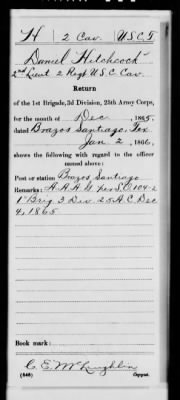 H | 2 Cav. | U S C T
Daniel Hitchcock
2nd Lieut 2 Regt U.S.C. Cav.
Return
of the 1st Brigade, 3d Division, 25th Army Corps,
for the month of Dec, 1865,
dated Brazos Santiago, Tex
Jan 2, 1866,
shows the following with regard to the officer
named above:
Post or station Brazos Santiago
Remarks: A.A.A.G. per S.O. 104-2
1" Brig 3 Div 25 A.C. Dec
4, 1865
Book mark:
C. E. McLaughlin
(646) Copyist.